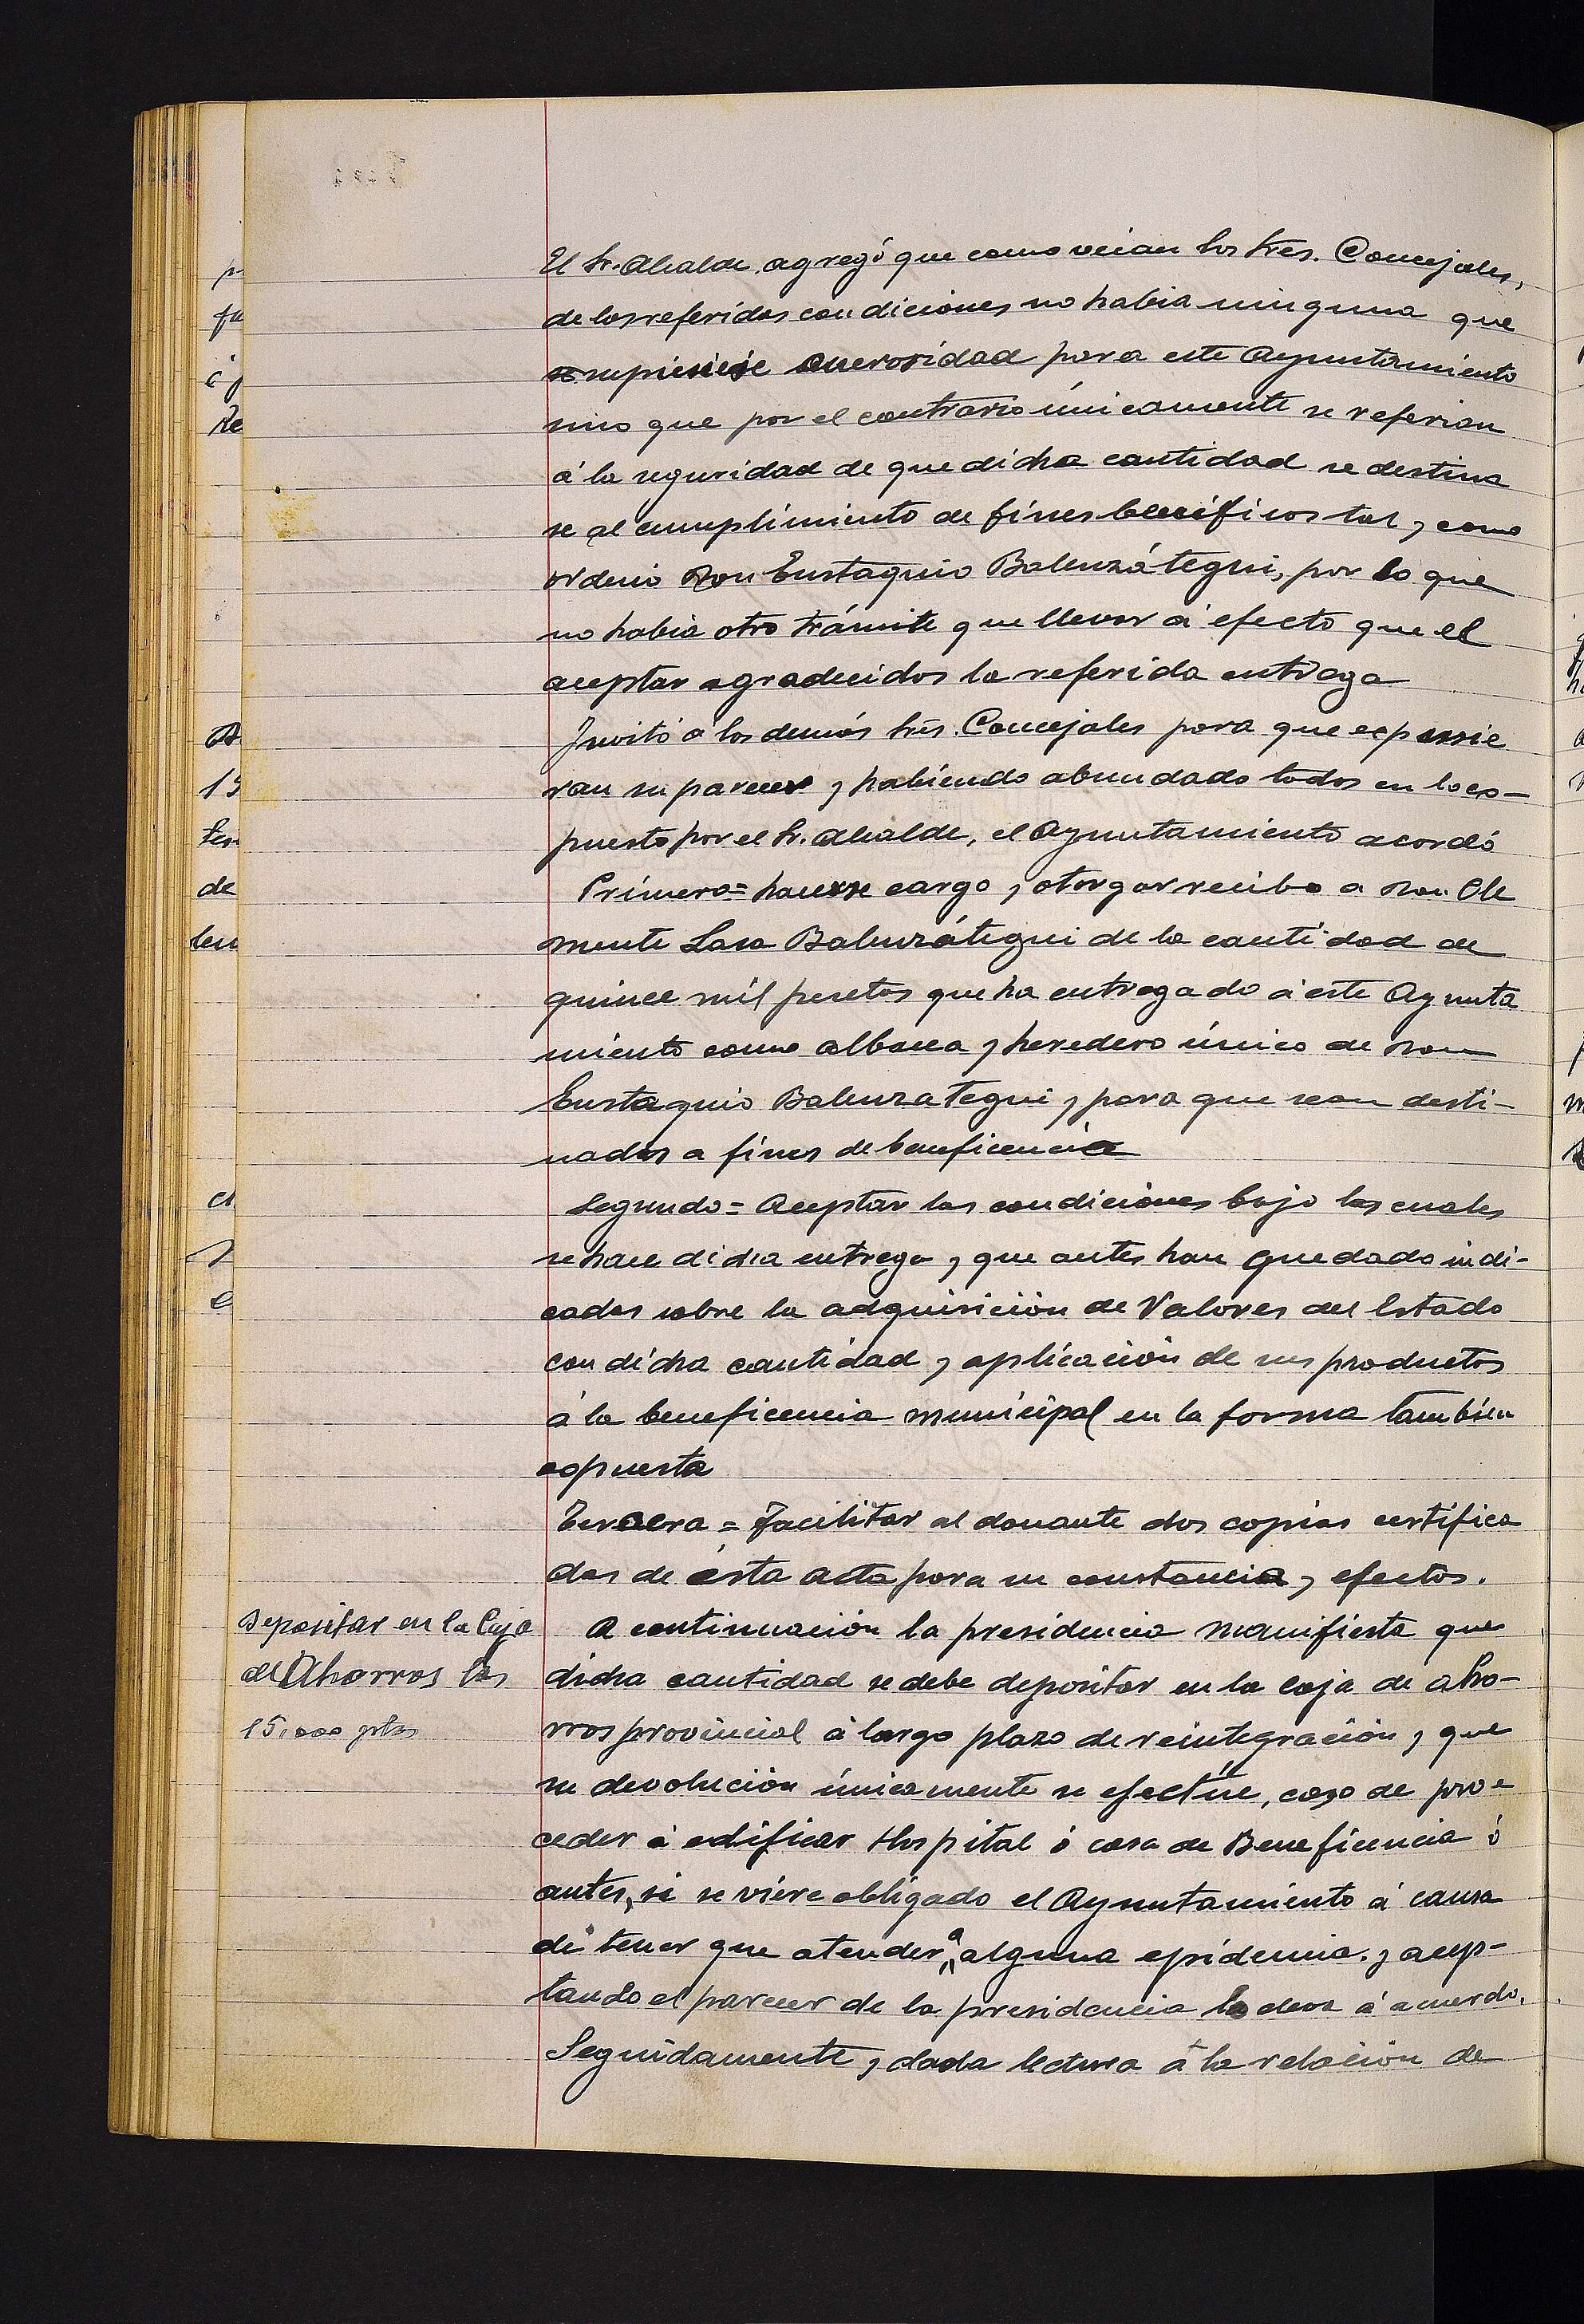 El Sr. Alcalde agregó que como veian los Sres. Concejales,
de las referidas condiciones no habia ninguna que
supiesiese onerosidad para este Ayuntamiento
sino que por el contrario únicamente se referian
á la seguridad de que dicha cantidad se destina
se al cumplimiento de fines beneficos tal y como
ordenó Don Eustaquio Balenzátegui, por lo que
no habia otro trámite que llevar á efecto que el
aceptar agradecidos la referida entrega
Invitó á los demás Sres. Concejales para que expusie
ran su parecer y habiendo abundado todos en lo ex-
puesto por el Sr. Alcalde, el Ayuntamiento acordó
Primero = hacerse cargo y otorgar recibo a Don Cle
mente Lasa Balenzátegui de la cantidad de
quince mil pesetas que ha entregado á este Ayunta
miento como albacea y heredero único de Don
Eustaquio Balenzategui y para que sean desti-
nados a fines de beneficencia
Segundo = Aceptar las condiciones bajo las cuales
se hace dicha entrega y que antes han quedado indi-
cadas sobre la adquisición de Valores del Estado
con dicha cantidad y aplicación de sus productos
á la beneficencia municipal en la forma tambien
expuesta
Tercera = Facilitar al donante dos copias certifica
das de ésta acta para su constancia y efectos.
Depositar en la Caja
de Ahorros las
15.000 ptas
A continuación la presidencia manifiesta que
dicha cantidad se debe depositar en la caja de aho-
rros provincial á largo plazo de reintegración y que
su devolución únicamente se efectúe, caso de pro-
ceder á edificar Hospital ó casa de Beneficencia ó
antes, si se viere obligado el Ayuntamiento á causa
de tener que atender a alguna epidemia. y acep-
tando el parecer de la presidencia lo eleva á acuerdo.
Seguidamente y dada lectura á la relación de